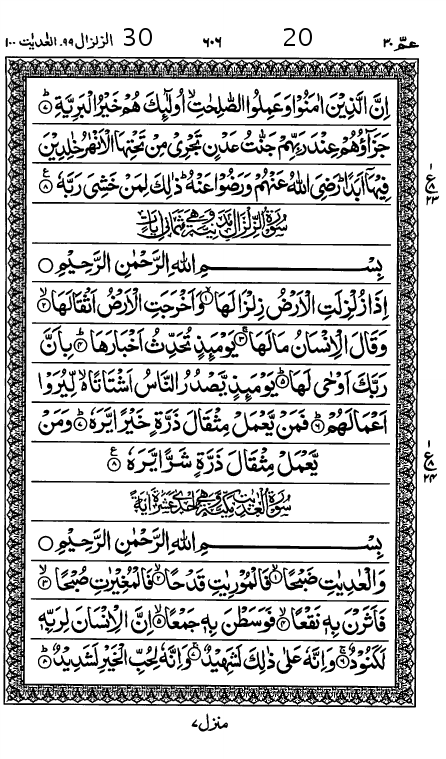 عمّ ٣٠ 20 ٦٠٦ 30 الزلزال ٩٩، العٰدیٰت ١٠٠
اِنَّ الَّذِیْنَ اٰمَنُوْا وَعَمِلُوا الصّٰلِحٰتِ ۙ اُولٰٓئِكَ هُمْ خَیْرُ الْبَرِیَّةِ ؕ۷
جَزَآؤُهُمْ عِنْدَ رَبِّهِمْ جَنّٰتُ عَدْنٍ تَجْرِیْ مِنْ تَحْتِهَا الْاَنْهٰرُ خٰلِدِیْنَ
فِیْهَاۤ اَبَدًا ؕ رَضِیَ اللّٰهُ عَنْهُمْ وَرَضُوْا عَنْهُ ؕ ذٰلِكَ لِمَنْ خَشِیَ رَبَّهٗ ۠۸
ع ١ ٨ ٢٣
سُوْرَةُ الزِّلْزَالِ مَدَنِیَّةٌ وَّهِیَ ثَمَانِیْ اٰیَاتٍ
بِسْمِ اللّٰهِ الرَّحْمٰنِ الرَّحِیْمِ ○
اِذَا زُلْزِلَتِ الْاَرْضُ زِلْزَالَهَا ۙ۱ وَاَخْرَجَتِ الْاَرْضُ اَثْقَالَهَا ۙ۲
وَقَالَ الْاِنْسَانُ مَا لَهَا ۚ۳ یَوْمَئِذٍ تُحَدِّثُ اَخْبَارَهَا ؕ۴ بِاَنَّ
رَبَّكَ اَوْحٰی لَهَا ؕ۵ یَوْمَئِذٍ یَّصْدُرُ النَّاسُ اَشْتَاتًا ۙ۬ لِّیُرَوْا
اَعْمَالَهُمْ ؕ۶ فَمَنْ یَّعْمَلْ مِثْقَالَ ذَرَّةٍ خَیْرًا یَّرَهٗ ؕ۷ وَمَنْ
یَّعْمَلْ مِثْقَالَ ذَرَّةٍ شَرًّا یَّرَهٗ ۠۸
ع ١ ٨ ٢٤
سُوْرَةُ الْعٰدِیٰتِ مَكِّیَّةٌ وَّهِیَ اِحْدٰی عَشْرَةَ اٰیَةً
بِسْمِ اللّٰهِ الرَّحْمٰنِ الرَّحِیْمِ ○
وَالْعٰدِیٰتِ ضَبْحًا ۙ۱ فَالْمُوْرِیٰتِ قَدْحًا ۙ۲ فَالْمُغِیْرٰتِ صُبْحًا ۙ۳
فَاَثَرْنَ بِهٖ نَقْعًا ۙ۴ فَوَسَطْنَ بِهٖ جَمْعًا ۙ۵ اِنَّ الْاِنْسَانَ لِرَبِّهٖ
لَكَنُوْدٌ ۚ۶ وَاِنَّهٗ عَلٰی ذٰلِكَ لَشَهِیْدٌ ۚ۷ وَاِنَّهٗ لِحُبِّ الْخَیْرِ لَشَدِیْدٌ ؕ۸
منزل ٧